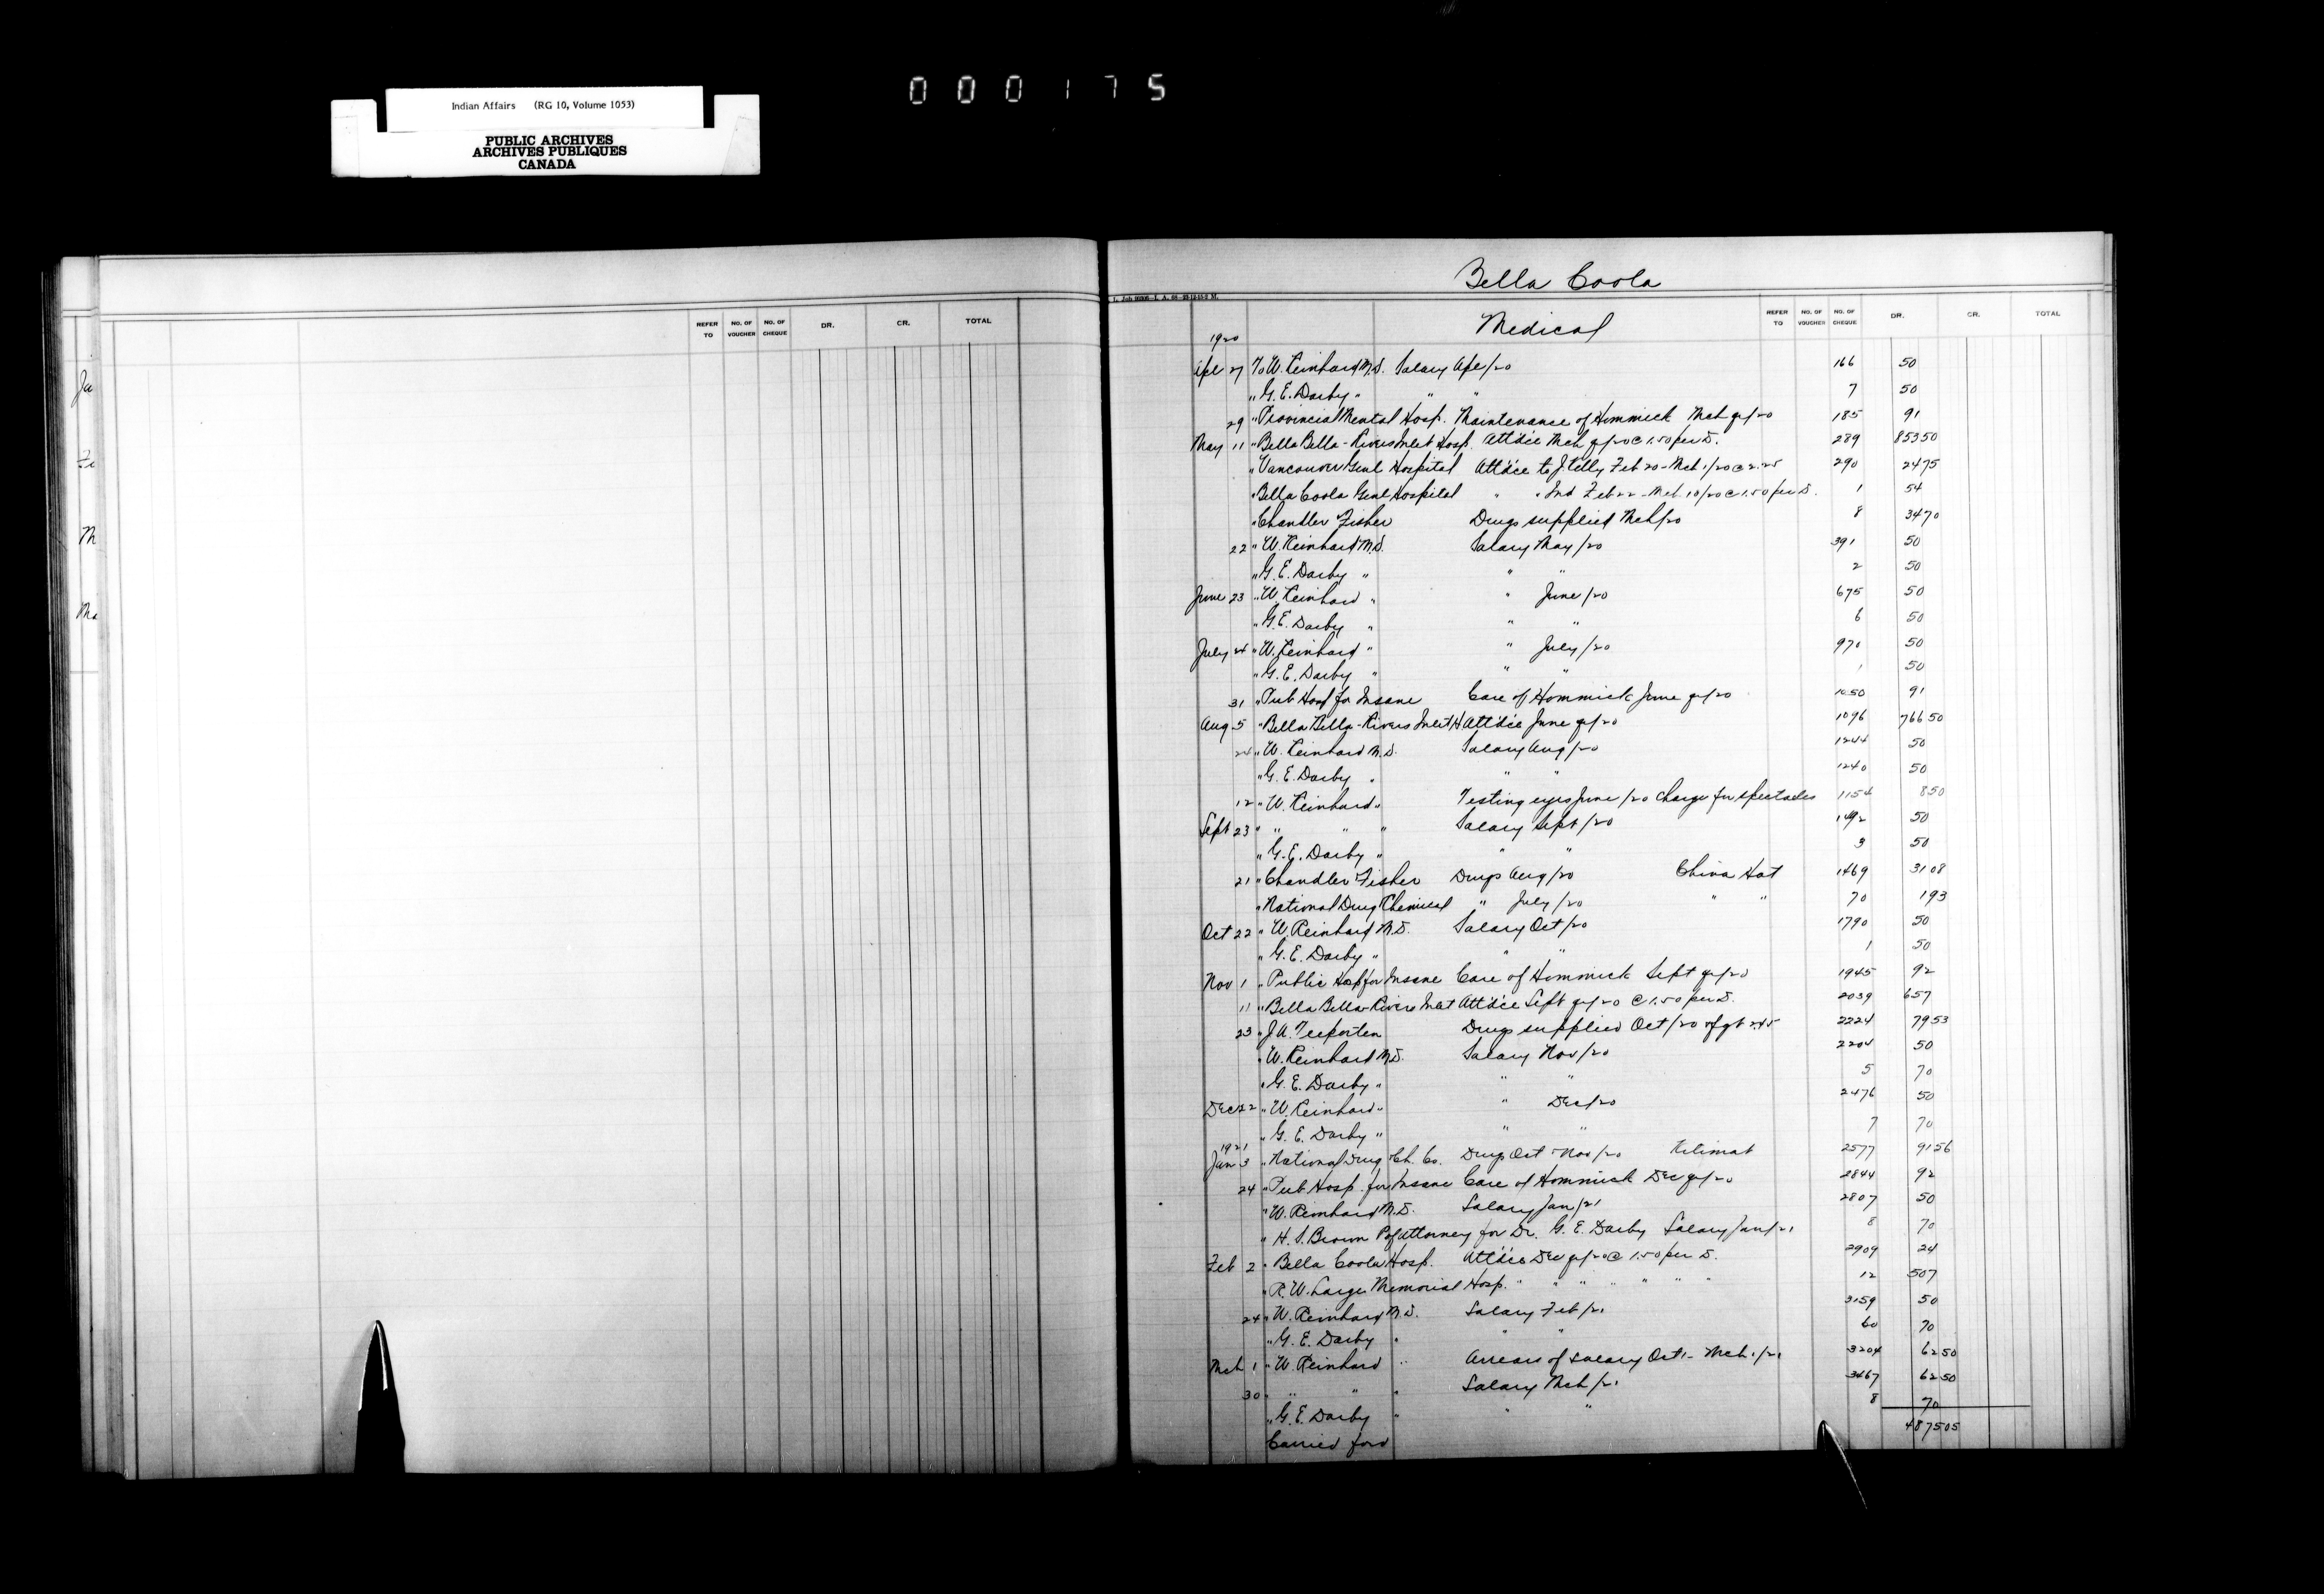 000175
Indian Affairs (RG 10, Volume 1053)
PUBLIC ARCHIVES
ARCHIVES PUBLIQUES
CANADA
REFER TO NO. OF VOUCHER NO. OF CHEQUE DR. CR. TOTAL
Bella Coola
Medical
REFER TO NO. OF VOUCHER NO. OF CHEQUE DR. CR. TOTAL
1920
Apl 27 To W. Reinhard M.D. Salary Apl/20 166 50
" G. E. Darby " " " 7 50
29 " Provincial Mental Hosp. Maintenance of Hommick Mch qr/20 185 91
May 11 " Bella Bella-Rivers Inlet Hosp. Att'd'ce Mch qr/20 @ 1.50 per D. 289 853 50
" Vancouver Genl Hospital Att'd'ce to J. Feb 20 - Mch 1/20 @ 2.25 290 24 75
" Bella Coola Genl Hospital " " Ind Feb 22 - Mch 10/20 @ 1.50 per D. 1 54
" Chandler Fisher Drugs supplied Mch/20 8 34 70
22 " W. Reinhard M.D. Salary May/20 391 50
" G. E. Darby " " " 2 50
June 23 " W. Reinhard " " June/20 675 50
" G. E. Darby " " " 6 50
July 24 " W. Reinhard " " July/20 970 50
" G. E. Darby " " " 1 50
31 " Pub Hosp for Insane Care of Hommick June qr/20 1050 91
Aug 5 " Bella Bella-Rivers Inlet H Att'd'ce June qr/20 1096 766 50
24 " W. Reinhard M.D. Salary Aug/20 1244 50
" G. E. Darby " " " 1240 50
12 " W. Reinhard " Testing eyes June/20 Charge for spectacles 1154 8 50
Sept 23 " " " " Salary Sept/20 1492 50
" G. E. Darby " " " 3 50
21 " Chandler Fisher Drugs Aug/20 China Hat 1469 31 08
" National Drug Chemical " July/20 " " 70 1 93
Oct 22 " W. Reinhard M.D. Salary Oct/20 1790 50
" G. E. Darby " " " 1 50
Nov 1 " Public Hosp for Insane Care of Hommick Sept qr/20 1945 92
11 " Bella Bella-Rivers Inlet Att'd'ce Sept qr/20 @ 1.50 per D. 2039 657
23 " J. A. Drugs supplied Oct/20 frgt 2.45 2224 79 53
" W. Reinhard M.D. Salary Nov/20 2204 50
" G. E. Darby " " " 5 70
Dec 22 " W. Reinhard " " Dec/20 2476 50
" G. E. Darby " " " 7 70
1921
Jan 3 " National Drug & Ch. Co. Drugs Oct & Nov/20 Kitimat 2577 91 56
24 " Pub Hosp. for Insane Care of Hommick Dec qr/20 2844 92
" W. Reinhard M.D. Salary Jan/21 2807 50
" H. S. Brown P of Attorney for Dr. G. E. Darby Salary Jan/21 8 70
Feb 2 " Bella Coola Hosp. Att'd'ce Dec qr/20 @ 1.50 per D. 2909 24
" R. W. Large Memorial Hosp. " " " " " " 12 507
24 " W. Reinhard M.D. Salary Feb/21 3159 50
" G. E. Darby " " " 60 70
Mch 1 " W. Reinhard " Arrears of salary Oct 1 - Mch 1/21 3204 62 50
30 " " " " Salary Mch/21 3467 62 50
" G. E. Darby " " " 8 70
Carried ford 4875 05